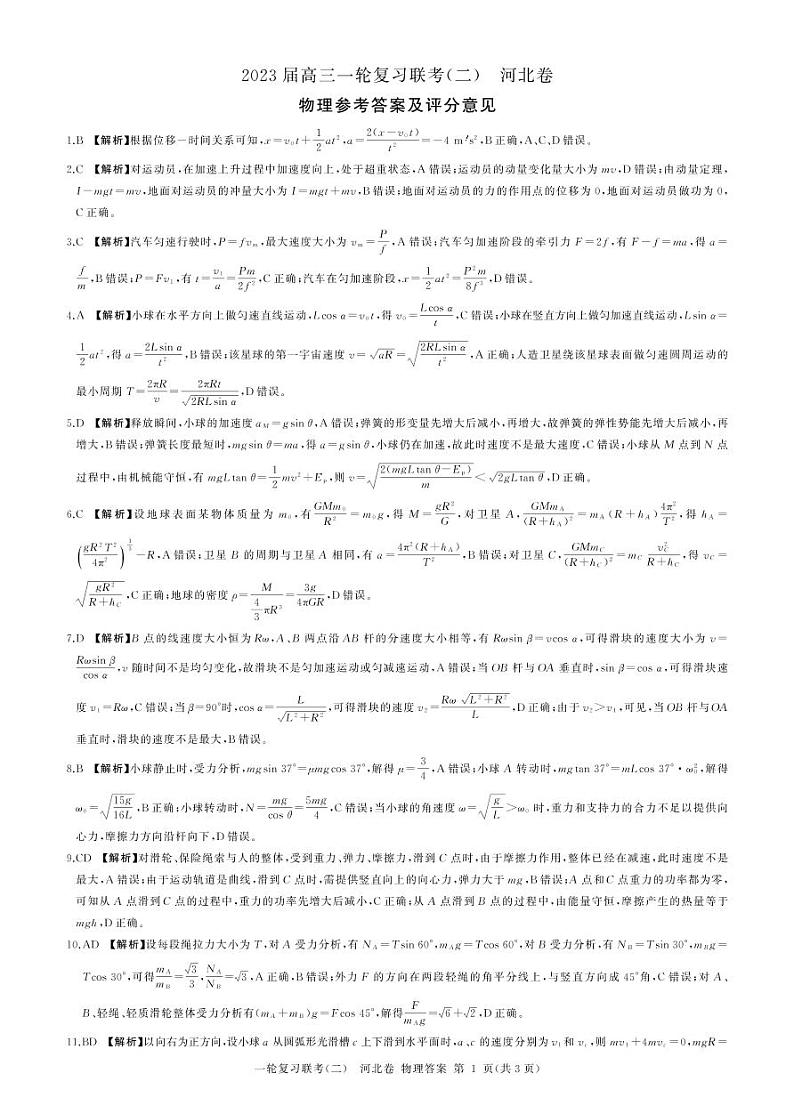 2023 届高三一轮复习联考(二) 河北卷
物理参考答案及评分意见
1.B 【解析】根据位移一时间关系可知,x=v₀t+1/2at²,a=2(x-v₀t)/t²=-4 m/s²,B正确,A、C、D错误。
2.C 【解析】对运动员,在加速上升过程中加速度向上,处于超重状态,A错误;运动员的动量变化量大小为mv,D错误;由动量定理,
I-mgt=mv,地面对运动员的冲量大小为I=mgt+mv,B错误;地面对运动员的力的作用点的位移为0,地面对运动员做功为0,
C正确。
3.C 【解析】汽车匀速行驶时,P=fvₘ,最大速度大小为vₘ=P/f,A错误;汽车匀加速阶段的牵引力F=2f,有F-f=ma,得a=
f/m,B错误;P=Fv₁,有t=v₁/a=Pm/2f²,C正确;汽车在匀加速阶段,x=1/2at²=P²m/8f³,D错误。
4.A 【解析】小球在水平方向上做匀速直线运动,Lcos α=v₀t,得v₀=Lcos α/t,C错误;小球在竖直方向上做匀加速直线运动,Lsin α=
1/2at²,得a=2Lsin α/t²,B错误;该星球的第一宇宙速度v=√(aR)=√(2RLsin α/t²),A正确;人造卫星绕该星球表面做匀速圆周运动的
最小周期T=2πR/v=2πRt/√(2RLsin α),D错误。
5.D 【解析】释放瞬间,小球的加速度a_M=gsin θ,A错误;弹簧的形变量先增大后减小,再增大,故弹簧的弹性势能先增大后减小,再
增大,B错误;弹簧长度最短时,mgsin θ=ma,得a=gsin θ,小球仍在加速,故此时速度不是最大速度,C错误;小球从M点到N点
过程中,由机械能守恒,有mgLtan θ=1/2mv²+Eₚ,则v=√(2(mgLtan θ-Eₚ)/m)<√(2gLtan θ),D正确。
6.C 【解析】设地球表面某物体质量为m₀,有GMm₀/R²=m₀g,得M=gR²/G,对卫星A,GMm_A/(R+h_A)²=m_A(R+h_A)4π²/T²,得h_A=
(gR²T²/4π²)^(1/3)-R,A错误;卫星B的周期与卫星A相同,有a=4π²(R+h_A)/T²,B错误;对卫星C,GMm_C/(R+h_C)²=m_C v_C²/(R+h_C),得v_C=
√(gR²/(R+h_C)),C正确;地球的密度ρ=M/(4/3πR³)=3g/4πGR,D错误。
7.D 【解析】B点的线速度大小恒为Rω,A、B两点沿AB杆的分速度大小相等,有Rωsin β=vcos α,可得滑块的速度大小为v=
Rωsin β/cos α,v随时间不是均匀变化,故滑块不是匀加速运动或匀减速运动,A错误;当OB杆与OA垂直时,sin β=cos α,可得滑块速
度v₁=Rω,C错误;当β=90°时,cos α=L/√(L²+R²),可得滑块的速度v₂=Rω√(L²+R²)/L,D正确;由于v₂>v₁,可见,当OB杆与OA
垂直时,滑块的速度不是最大,B错误。
8.B 【解析】小球静止时,受力分析,mgsin 37°=μmgcos 37°,解得μ=3/4,A错误;小球A转动时,mgtan 37°=mLcos 37°·ω₀²,解得
ω₀=√(15g/16L),B正确;小球转动时,N=mg/cos θ=5mg/4,C错误;当小球的角速度ω=√(g/L)>ω₀时,重力和支持力的合力不足以提供向
心力,摩擦力方向沿杆向下,D错误。
9.CD 【解析】对滑轮、保险绳索与人的整体,受到重力、弹力、摩擦力,滑到C点时,由于摩擦力作用,整体已经在减速,此时速度不是
最大,A错误;由于运动轨道是曲线,滑到C点时,需提供竖直向上的向心力,弹力大于mg,B错误;A点和C点重力的功率都为零,
可知从A点滑到C点的过程中,重力的功率先增大后减小,C正确;从A点滑到B点的过程中,由能量守恒,摩擦产生的热量等于
mgh,D正确。
10.AD 【解析】设每段绳拉力大小为T,对A受力分析,有N_A=Tsin 60°,m_Ag=Tcos 60°,对B受力分析,有N_B=Tsin 30°,m_Bg=
Tcos 30°,可得m_A/m_B=√3/3,N_A/N_B=√3,A正确,B错误;外力F的方向在两段轻绳的角平分线上,与竖直方向成45°角,C错误;对A、
B、轻绳、轻质滑轮整体受力分析有(m_A+m_B)g=Fcos 45°,解得F/m_Ag=√6+√2,D正确。
11.BD 【解析】以向右为正方向,设小球a从圆弧形光滑槽c上下滑到水平面时,a、c的速度分别为v₁和v_c,则mv₁+4mv_c=0,mgR=
一轮复习联考(二) 河北卷 物理答案 第 1 页(共 3 页)